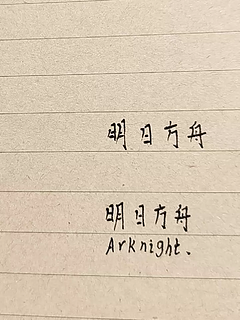 明日方舟
明日方舟
Arknight、